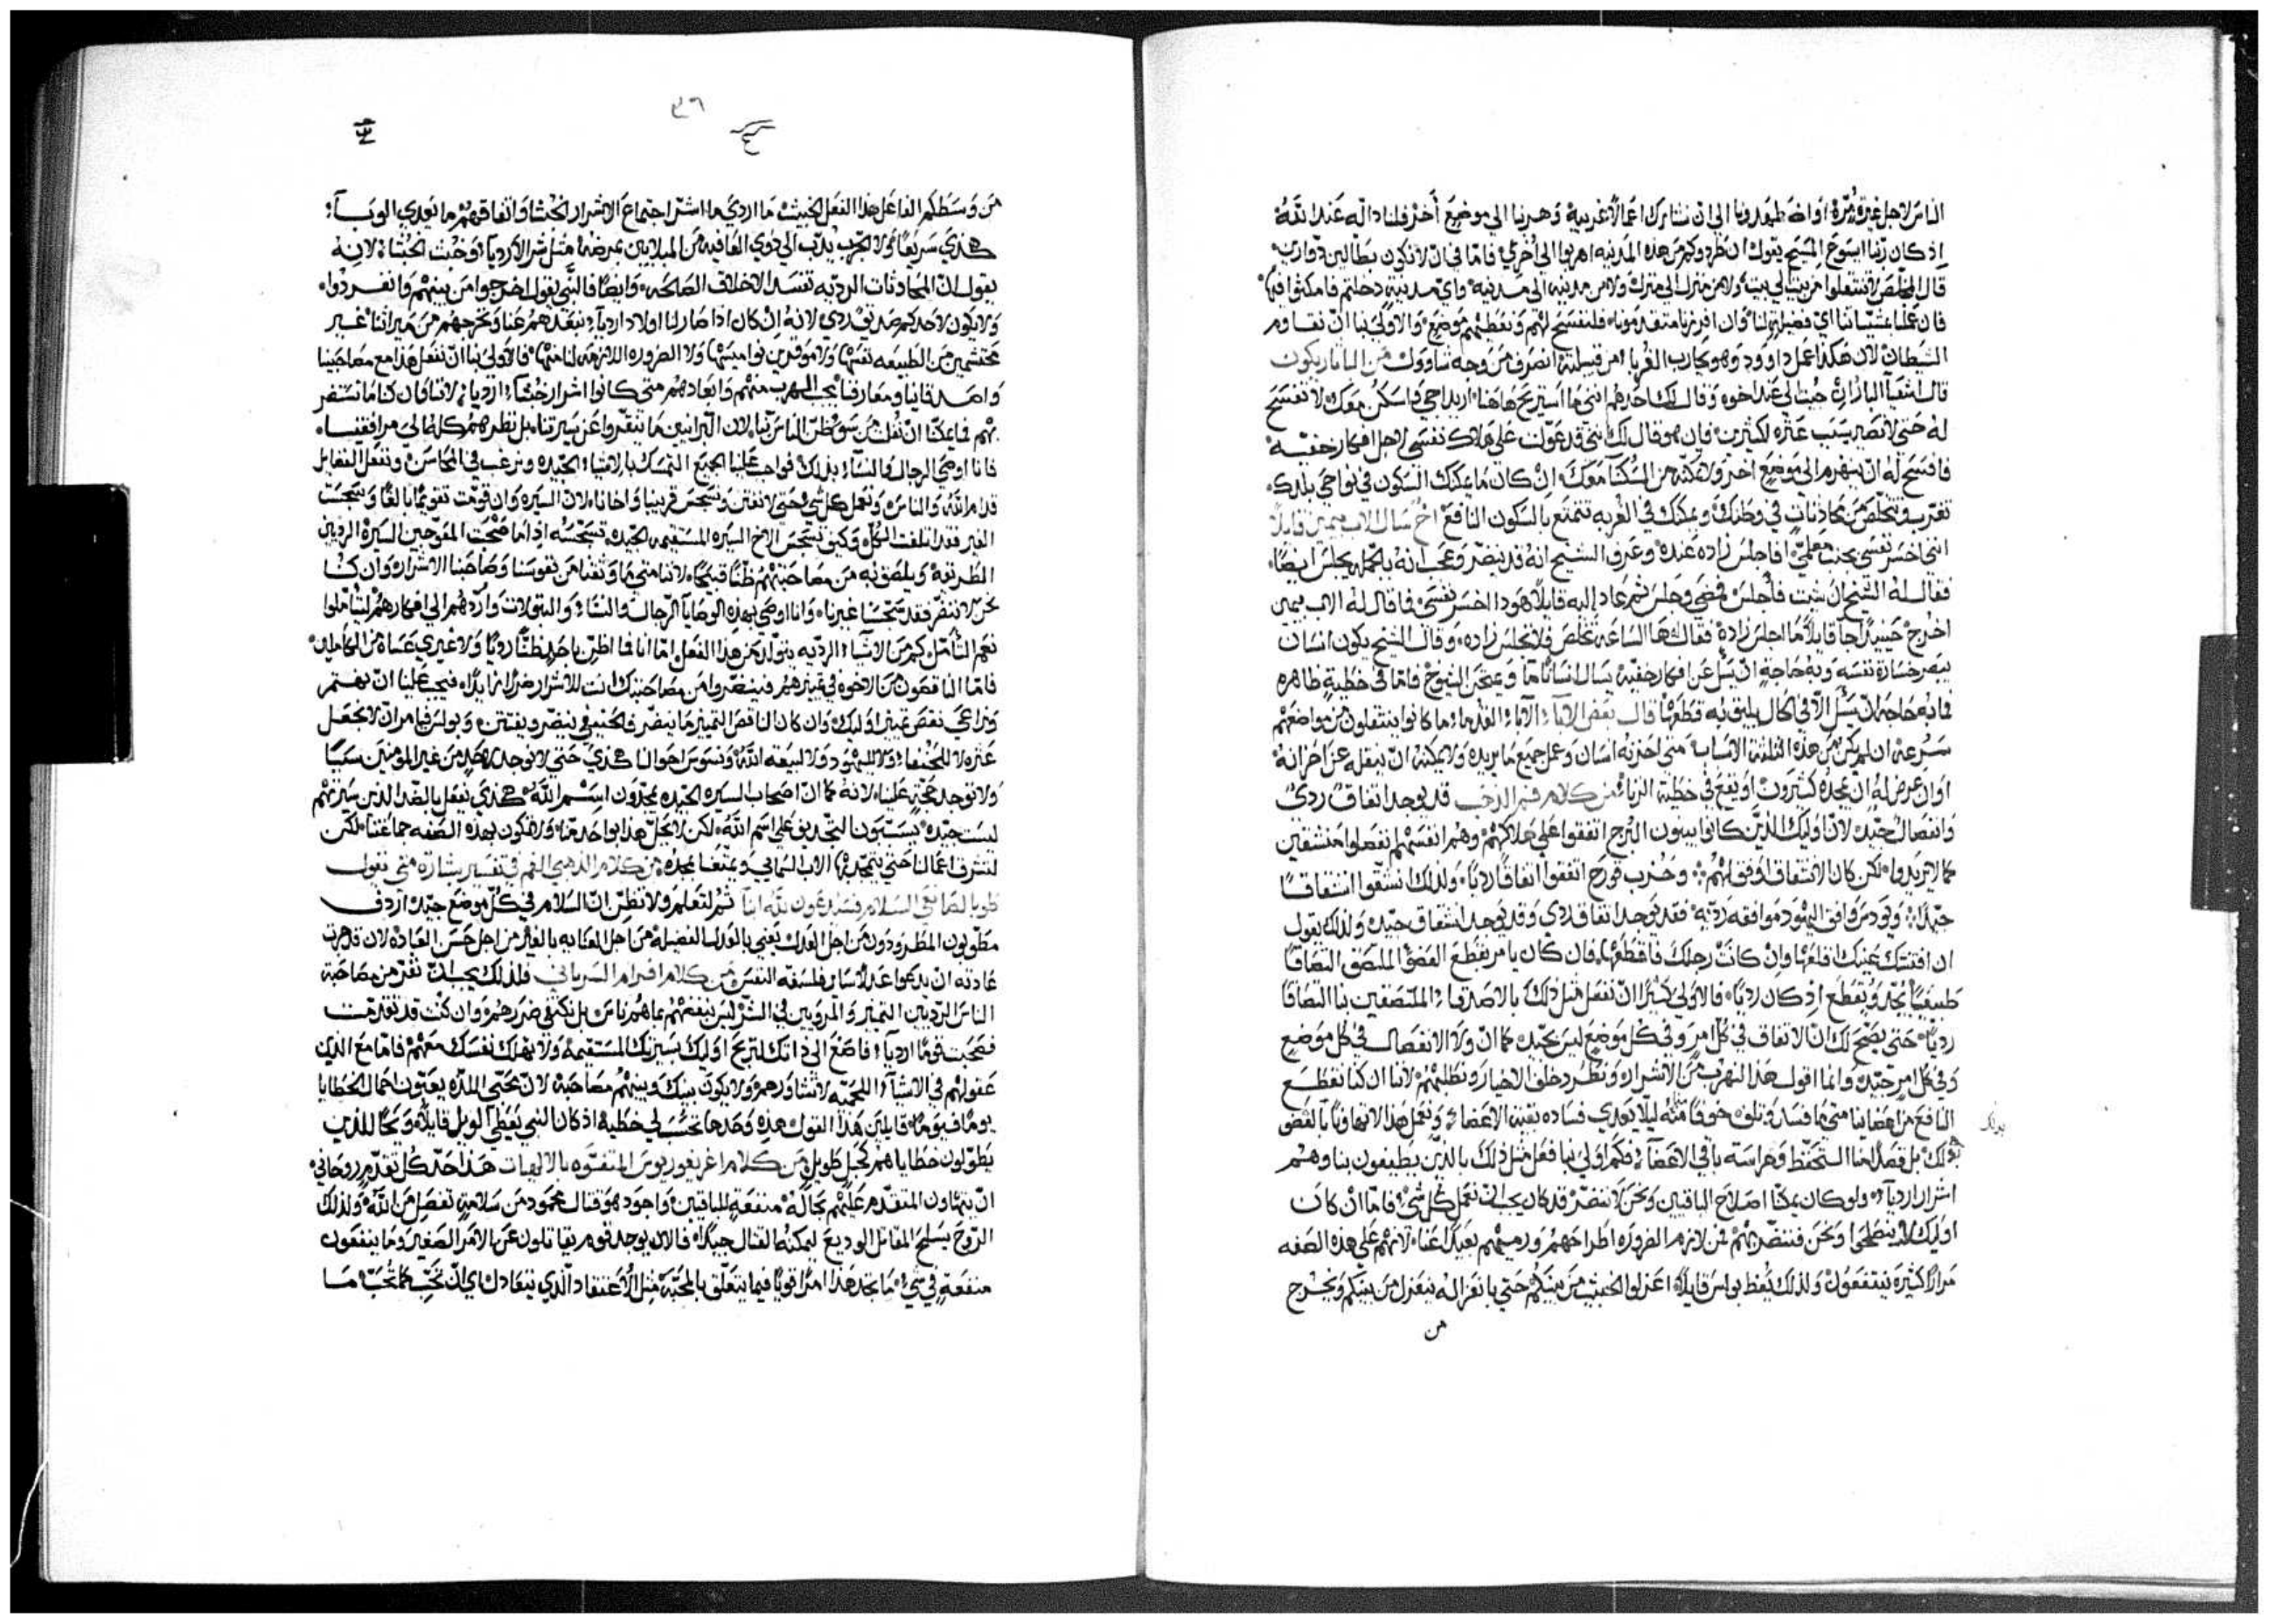 الناس لاجل غيرة مُرّة او اضطهدونا الي ان نشارك اعمالاً غريبة وهربنا الي موضع آخر فلنا دالّه عند الله
اذ كان ربنا ايسوع المسيح يقول ان طردوكم من هذه المدينه اهربوا الي اُخري فامّا في انّ لا نكون بطّالين دوّارين
قال المخلّص لا تنتقلوا من بيت الي بيت ولا من منزل الي منزل ولا من مدينه الي مدينه واي مدينة دخلتم فامكثوا فيها
الشيطان لان هكذا عمل داوود وهو يحارب الغربا من قبيلته انصرف من وجه شاوول من البا ماريكون
قال اشعيا البار ان جيت الي عند اخوه وقال لك احدهم انني ما استريح هاهنا اريد اجي فاسكن معك لا تفسح
له حتي لا تصير سبب عثره لكثيرين فان هو قال لك انني قد عوّلت علي هلاك نفسي لاجل افكار خفيه
فافسح له ان يهرب الي موضع اخر ولا تمكّنه من السكنا معك ان كان ما يمكنك السكون في نواحي بلدك
تغرّب وتخلّص من محادثات في وطنك ويمكنك في الغربه تتمتع بالسكون النافع اخ سال الاب بيمين قايلاً
انني اخسر نفسي بجنب معلمي افاجلس زاده عنده وعرف الشيخ انه قد ينضرّ وعجب انه بالجمله يجلس ايضاً
فقال له الشيخ ان شيت فاجلس فمضي وجلس ثم عاد اليه قايلاً هوذا اخسر نفسي فما قال له الاب بيمين
اخرج حينيذ جا قايلاً ما اجلس زاده فقال ها الساعة تخلص فلا تجلس زاده وقال الشيخ يكون انسان
يبصر خسارة نفسه وبه حاجه ان يسل عن افكار خفيه يسال انساناً ما ويمتحن الشيوخ فامّا في خطية ظاهره
فما به حاجه ان يسل الا في الحال يليق به قطعها قال بعض الابا الابا القدما ما كانوا ينتقلون من مواضعهم
بسرعه ان لم يكن من هذه الثلثه الاسباب متي احزنه انسان وعمل جميع ما يريده ولا يمكنه ان ينقله عن احزانه
او ان عرض له ان يمجّده كثيرون او يقع في خطية الزنا من كلام فم الذهب قد يوجد اتفاق رديّ
وانفصال جيّد لان اوليك الذين كانوا يبنون البرج اتفقوا علي هلاكهم وهم انفسهم انفصلوا منشقين
كما لا يريدوا لكن كان الانشقاق اوفق لهم وحزب قورح اتفقوا اتفاقاً ردياً ولذلك انشقّوا انشقاقاً
جيّداً ويودس وافق اليهود موافقه رديّه فقد يوجد اتفاق ردي وقد يوجد انشقاق جيّد ولذلك يقول
ان افتنتك عينك اقلعها وان كانت رجلك فاقطعها فان كان يامر بقطع العضو الملتصق التصاقاً
طبيعيّاً بجسد ويقطع اذ كان ردياً فالاولي كثيراً ان نفعل مثل ذلك بالاصدقا الملتصقين بنا التصاقاً
ردياً حتي يصحّ لك ان الاتفاق في كل امر وفي كل موضع ليس بجيّد كما ان ولا الانفصال في كل موضع
وفي كل امر جيّد وانما اقول هذا لنهرب من الاشرار ونطرد خلف الاخيار ونطلبهم لاننا ان كنا نقطع
النافع من اعضاينا متي ما فسد وتلف خوفاً منه ليلا يعدي فساده بقيه الاعضا ونعمل هذا لا تهاوناً بالعضو
بذلك
بل قصدنا التحفظ وحراسة باقي الاعضا فكم اولي بنا فعل مثل ذلك بالذين يطيفون بنا وهم
اشرار اردياً ولو كان يمكنا اصلاح الباقيين ونحن لا ننضرّ قد كان يجب ان نعمل كل شي فامّا ان كان
اوليك لا ينصلحوا ونحن فننضرّ بهم فمن لازم الضروره اطراحهم ورميهم بعيداً عنا لانهم علي هذه الصفه
مراراً كثيره ينتفعون ولذلك يعظ بولس قايلاً اعزلوا الخبيث من بينكم حتي بانعزاله ينعزل من بينكم ويخرج
من
٣٦
من وسطكم الفاعل هذا الفعل الخبيث ما اردي ما اشرّ اجتماع الاشرار الخبثا واتفاقهم ما يعدي الوبا
هكذي سريعاً ولا الجرب يدبّ الي ذوي العافيه من المبلايين بمرضه مثل شر الاردياً وخبث الخبثا لانه
يقول ان المحادثات الرديّه تفسد الاخلاق الصالحه وايضاً فالنبي يقول اخرجوا من بينهم وانفردوا
ولا يكون لاحدكم صديق ردي لانه ان كان اذا صار لنا اولاد اردياً نبعدهم عنا ونخرجهم من ميراثنا غير
محتشمين من الطبيعه نفسها ولا موقرين نواميسها ولا الضروره اللازمه لنا منها فالاولي بنا ان نفعل هذا مع مصاحبينا
واصدقاينا ومعارفنا يجب الهرب منهم وابعادهم متي كانوا اشرار خبثاً اردياً لاننا وان كنا ما نستضر
بهم فما يمكنّا ان نفلت من سو ظن الناس بنا لان البرانيين ما ينقّروا عن سيرتنا بل نظرهم كله الي مرافقينا
فانا اوصي الرجال والنسا بذلك فواجب علينا الجميع التمسك بالاشيا الجيّده ونرغب في المحاسن ونفعل الفضايل
قدام الله والناس ونعمل كل شي حتي لا نفتن وننجس قريبنا واخانا لان السيره وان قومت تقويماً بالغاً ونجّست
الغير فقد اتلفت الكل وكيف تنجّس الاخ السيره المستقيمه الجيّده تنجسه اذا ما صحبت المعوجين السيرة الرديين
الطريقه ويلصق به من مصاحبتهم ظناً قبيحاً لاننا متي ما وثقنا من نفوسنا وصاحبنا الاشرار وان كنا
نحن لا ننضرّ فقد نجّسنا غيرنا وانا اوصي بهذه الوصايا الرجال والنسا والبتولات واردهم الي افكارهم ليتاملوا
نعم التامّل كم من الاشيا الرديّه يتولد من هذا الفعل امّا انا فما اظن باحد ظناً ردياً ولا غيري عساه من الكاملين
فامّا الناقصون من الاخوه في تمييزهم فينضرّوا من مصاحبتك انت للاشرار ضرراً زايداً فيجب علينا ان نهتم
ونراعي نقص تمييز اوليك وان كان الناقص التمييز ما ينضر فالحنيفي ينضر ويفتتن وبولس فيامر ان لا نجعل
عثره لا للحنفا ولا لليهود ولا لبيعة الله ونسوس احوالنا هكذي حتي لا نوجد لاحد من غير المومنين سبباً
ولا توجد محجّه علينا لانه كما ان اصحاب السيره الجيّده يمجّدون اسم الله هكذي نفعل بالضد الذين سيرتهم
ليست جيّده يسببون التجديف علي اسم الله لكن لا يحلّ هذا بواحد منا ولا نكون بهذه الصفه جماعتنا لكن
لتشرف اعمالنا حتي يتمجّد بها الاب السمايي ونتمتع بمجده من كلام الذهبي الفم في تفسير بشاره متي نقول
طوبا لصانعي السلام فسيدعون لله ابنا ثم لتعلم ولا تظن ان السلام في كل موضع جيّد اردف
مطوّبون المطرودون من اجل العدل يعني بالعدل الفضيله من اجل العنايه بالغير من اجل حسن العباده لان قد جرت
عادته ان يدعوا عدلاً ساير فلسفه النفس من كلام افرام السرياني فلذلك يجب ان نفر من مصاحبة
الناس الرديين التمييز والمرويين في الشر ليس نبغضهم بما هم ناس بل نكتفي ضررهم وان كنت قد تقدمت
فصحبت قوماً اردياً فاصغ الي ذاتك لتربح اوليك بسيرتك المستقيمه ولا تهلك نفسك معهم فامّا مع الذين
عقولهم في الاشيا اللحميّه لا تتشاورهم ولا يكون بينك وبينهم مصاحبه لان محبّي اللذه يعبّون احمال الخطايا
يوماً فيوماً قايلين هذا القول هذه وحدها تحسب لي خطية اذ كان النبي يعطي الويل قايلاً ويحاً للذين
يطوّلون خطاياهم كحبل طويل من كلام اغريغوريوس المتفوّه بالالهيات هذا حدّ كل تقدّم روحاني
ان يتهاون المتقدم عليهم بحاله منفعه للباقين واجود هو قتال محمود من سلامه تفصل من الله ولذلك
الروح يسلّح المقاتل الوديع ليمكنه القتال جيداً فالان يوجد قوم يقاتلون عن الامر الصغير وما ينفعون
منفعه في شي ما نجد هذا امراً قوياً فيما يتعلق بالمحبّه مثل الاعتقاد الذي يتعادل اي ان نحب كما نحب ما